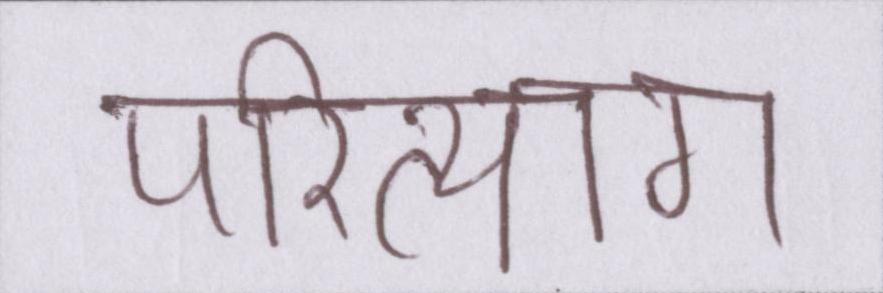 परित्याग